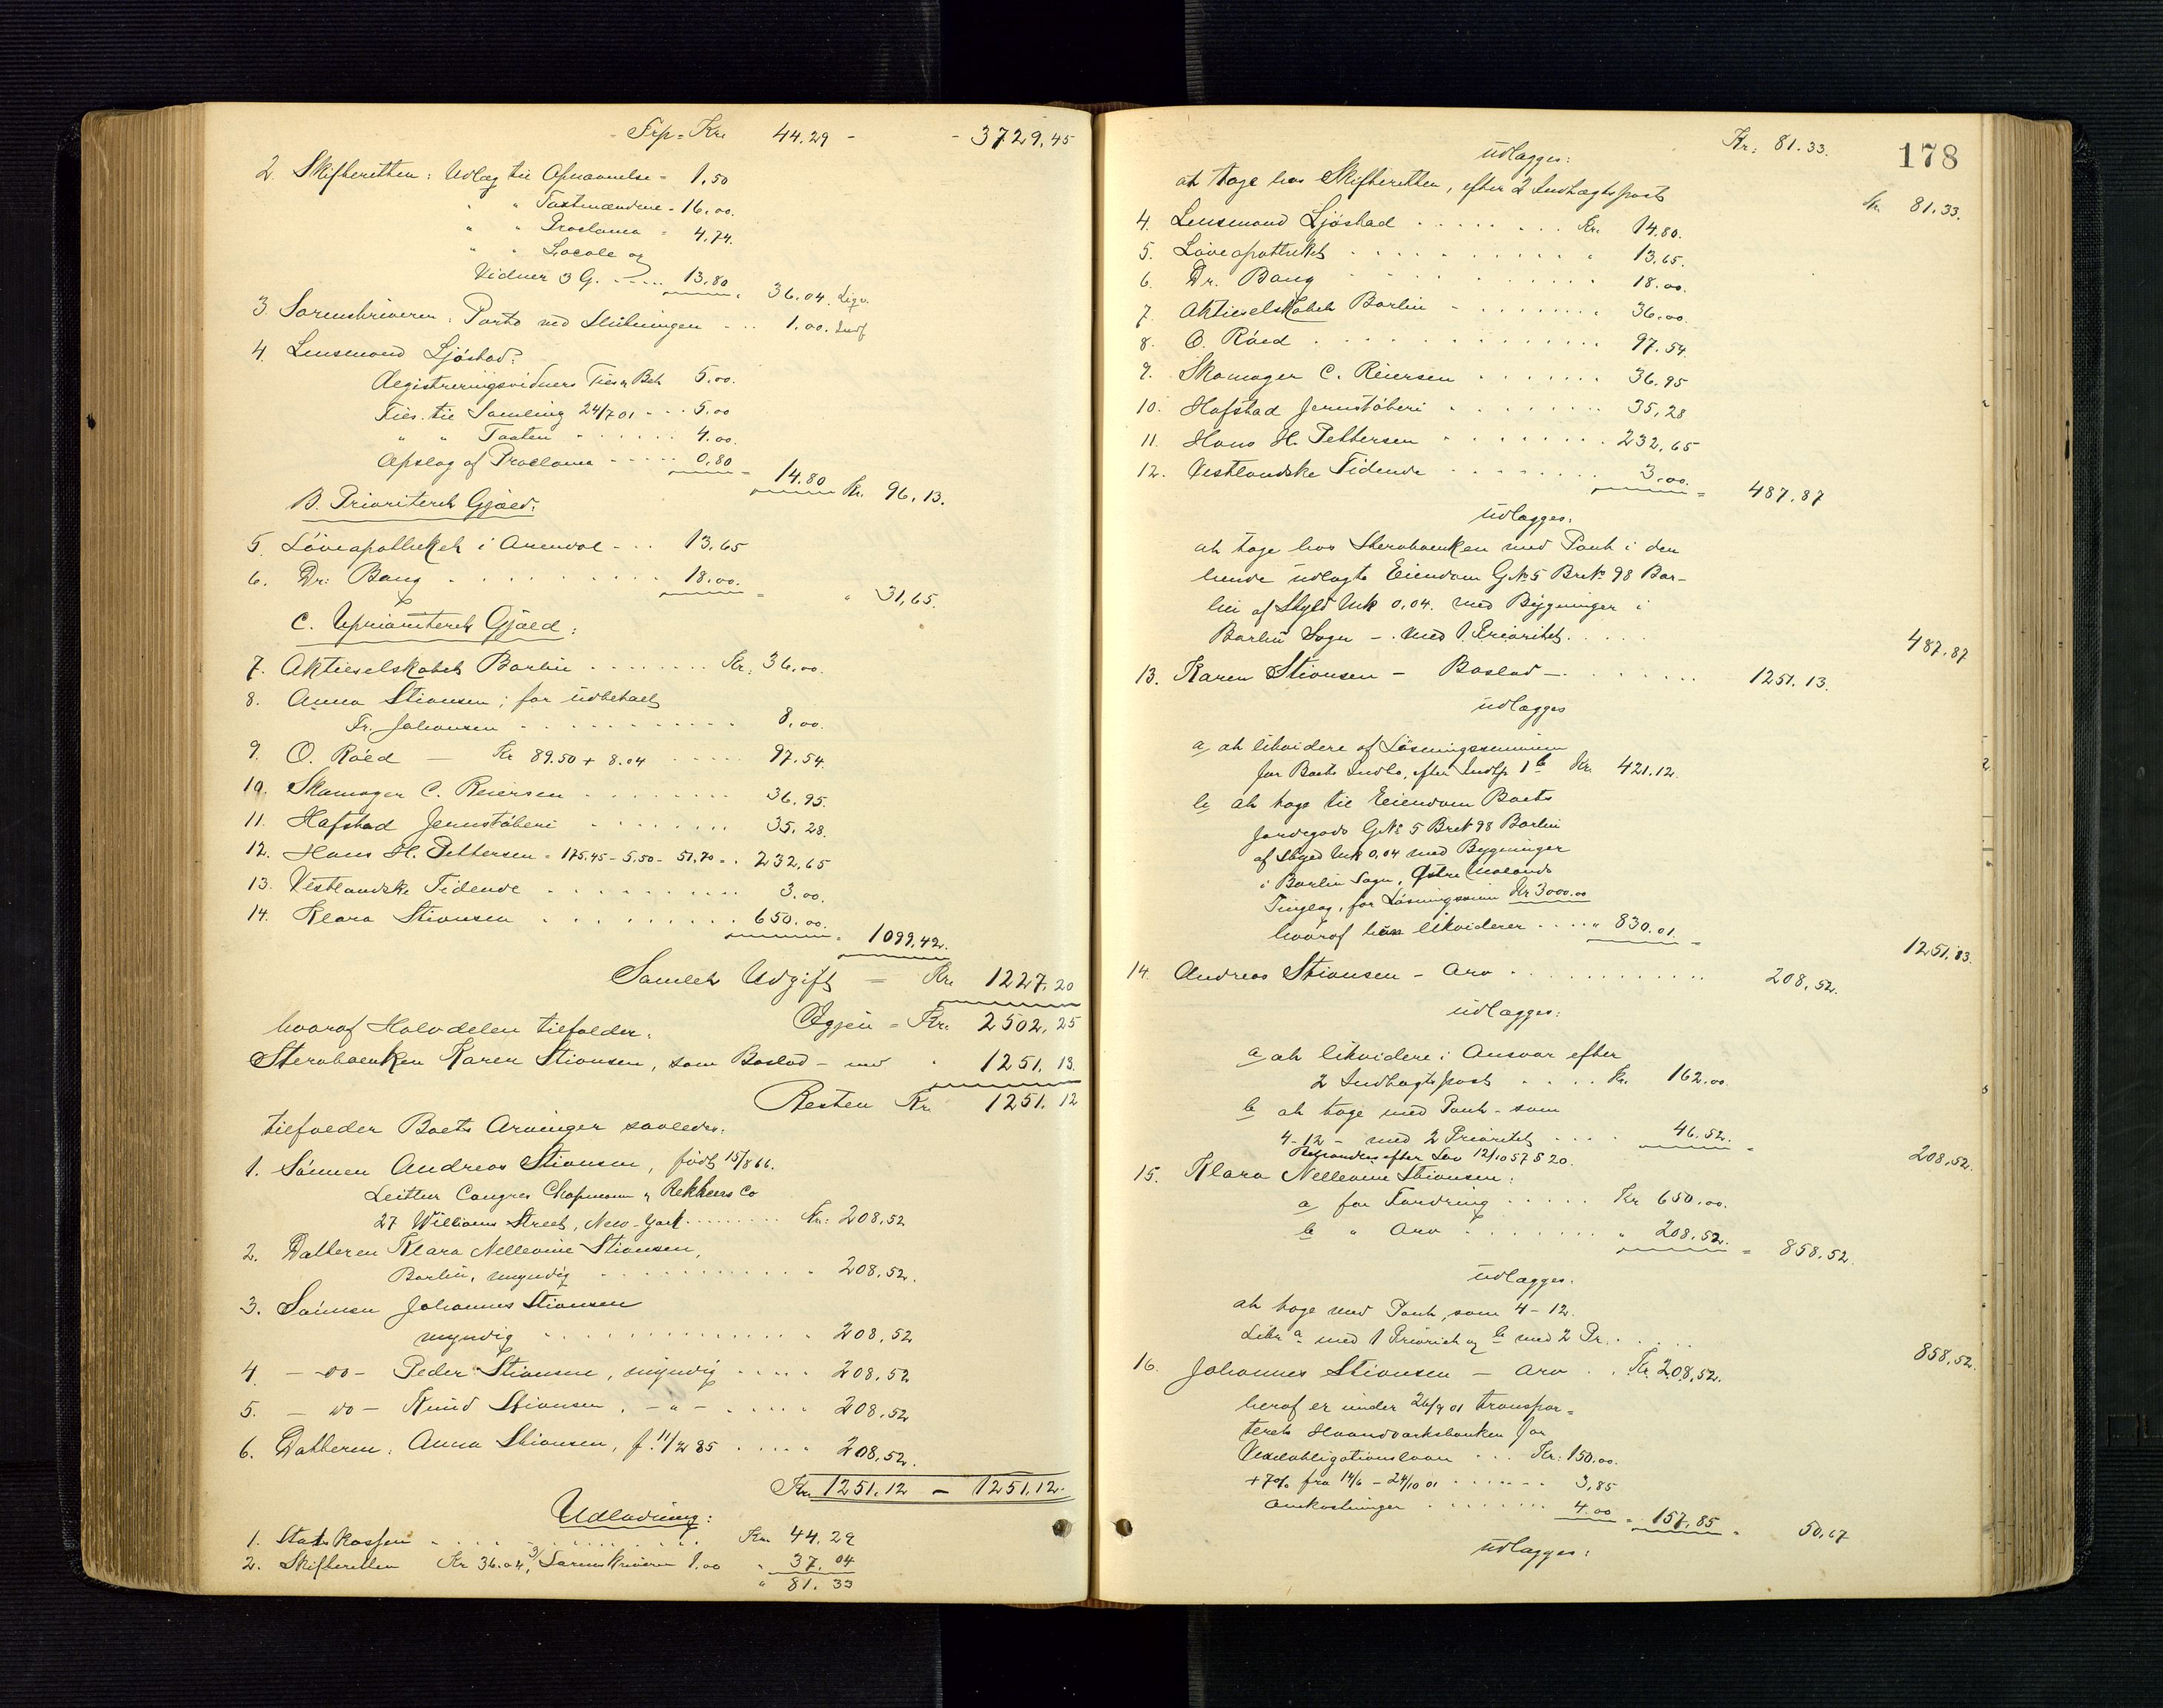 Frp = Kr. 44.29 - - 3729.45
2. Skifteretten: Udlæg til Opnævnelse = 1.50
" " Taxtmændene - 16.00.
" " Proclama = 4.74.
" " Locale og
Vidner 3 G. - - - - - 13.80 " 36.04. Liqv.
3. Sorenskriveren: Porto ved Slutningen - - - 1.00. Indf
4. Lensmand Ljöstad:
Registreringsvidners Ties & Bet 5.00.
Ties. til Samling 24/7 01 - - - 5.00
" " Taxten - - - - - - 4.00.
Opslag af Proclama - - - - - 0.80 = 14.80 Kr. 96.13.
B. Prioriteret Gjæld.
5. Löveapotheket i Arendal - - - 13.65
6. Dr: Bang . . . . . . . . . 18.00. = " 31,65.
C. Uprioriteret Gjæld:
7. Aktieselskabet Barbu . . . . . . . . Kr: 36.00.
8. Anna Stiansen; for udbetalt
Fr. Johansen - - - - - - - - - - 8.00.
9. O. Röed — Kr 89.50 + 8.04 - - - - - 97.54.
10. Skomager C. Reiersen - - - - - - - - 36.95.
11. Hafstad Jernstöberi - - - - - - - - 35.28.
12. Hans H. Pettersen = 175.45 - 5.50 - 51.70 = . 232,65
13. Vestlandske Tidende . . . . . . . . . . 3.00.
14. Klara Stiansen . . . . . . . . . . 650.00. = 1099,42.
Samlet Udgift = Kr. 1227.20
Igjen = Kr. 2502.25
hvoraf Halvdelen tilfalder:
Stervboenken Karen Stiansen, som Boslod - med " 1251.13.
Resten Kr. 1251.12
tilfalder Boets Arvinger saaledes:
1. Sönnen Andreas Stiansen, födt 15/8 66.
27 Williams Street, New-York. . . . . . . . . Kr: 208,52
2. Datteren Klara Nelleovine Stiansen,
Barbu, myndig - - - - - - - - - - - - 208.52.
3. Sönnen Johannes Stiansen
myndig - - - - - - - - - - - - - 208,52
4. — do — Peder Stiansen, myndig - - - - - 208.52
5. — do — Knud Stiansen, - " - - - - - - 208.52
6. Datteren: Anna Stiansen, f. 11/2 85 - - - - - 208,52.
Kr. 1251.12 — 1251.12.
Udlodning:
1. Statskassen . . . . . . . . . . . . Kr. 44.29
2. Skifteretten Kr 36.04, 3/ Sorenskriveren 1.00 " 37.04
" 81.33
Kr: 81.33. 178
udlægges:
at tage hos Skifteretten, efter 2 Indtægtspost Kr. 81.33.
4. Lensmand Ljöstad . . . . . . . . Kr. 14.80.
5. Löveapotheket . . . . . . . . . . . " 13,65.
6. Dr. Bang - - - - - - - - - 18.00.
7. Aktieselskabet Barbu - - . . . . . . . " 36.00.
8. O. Röed . . . . . . . . . . . . . 97.54.
9. Skomager C. Reiersen . . . . . . . 36.95
10. Hafstad Jernstöberi . . . . . . . . 35,28
11. Hans H. Pettersen - . . . . . . . . 232,65
12. Vestlandske Tidende - - - - - - - . . 3.00. = 487.87
udlægges.
at tage hos Stervboenken med Pant i den
hende udlagte Eiendom G.No 5 Br.No 98 Bar-
bu af Skyld Mk 0,04. med Bygninger i
Barbu Sogn —. med 1. Prioritet. . . . . 487.87
13. Karen Stiansen — Boslod — . . . . . . . 1251.13.
udlægges
a, at likvidere af Lösningssummen
for Boets Indbo, efter Indtp 1 b Kr. 421.12.
b, at tage til Eiendom Boets
Jordegods G.No 5 Br.No 98 Barbu
af Skyld Mk 0,04 med Bygninger
i Barbu Sogn, Östre Molands
Tinglag, for Lösningssum Kr 3000.00
hvoraf hun likviderer . . . . " 830.01. = 1251,13.
14. Andreas Stiansen - Arv . . . . . . . . . . . . 208,52.
udlægges:
a, at likvidere i Ansvar efter
2 Indtægtspost . . . . Kr. 162.00.
b, at tage med Pant - som
4-12 - med 2 Prioritet . . . . 46,52. = 208,52.
efter Lov 12/10 57 § 20.
15. Klara Nelleovine Stiansen:
a, for Fordring . . . . . Kr 650.00.
b, " Arv . . . . . . . . " 208,52. = 858,52.
udlægges.
at tage med Pant, som 4-12.
Litr a. med 1 Priorit og b. med 2 Pr. . . . . 858,52.
16. Johannes Stiansen — Arv . . Kr. 208,52.
heraf er under 26/9 01 transpor=
teret Haandværksbanken for
Vexelobligationslaan - - - Kr: 150.00.
+ 7% fra 14/6 - 24/10 01 - - - - - - - 3,85
Omkostninger . . . . . . . . 4.00 = 157,85 = 50,67
udlægges: